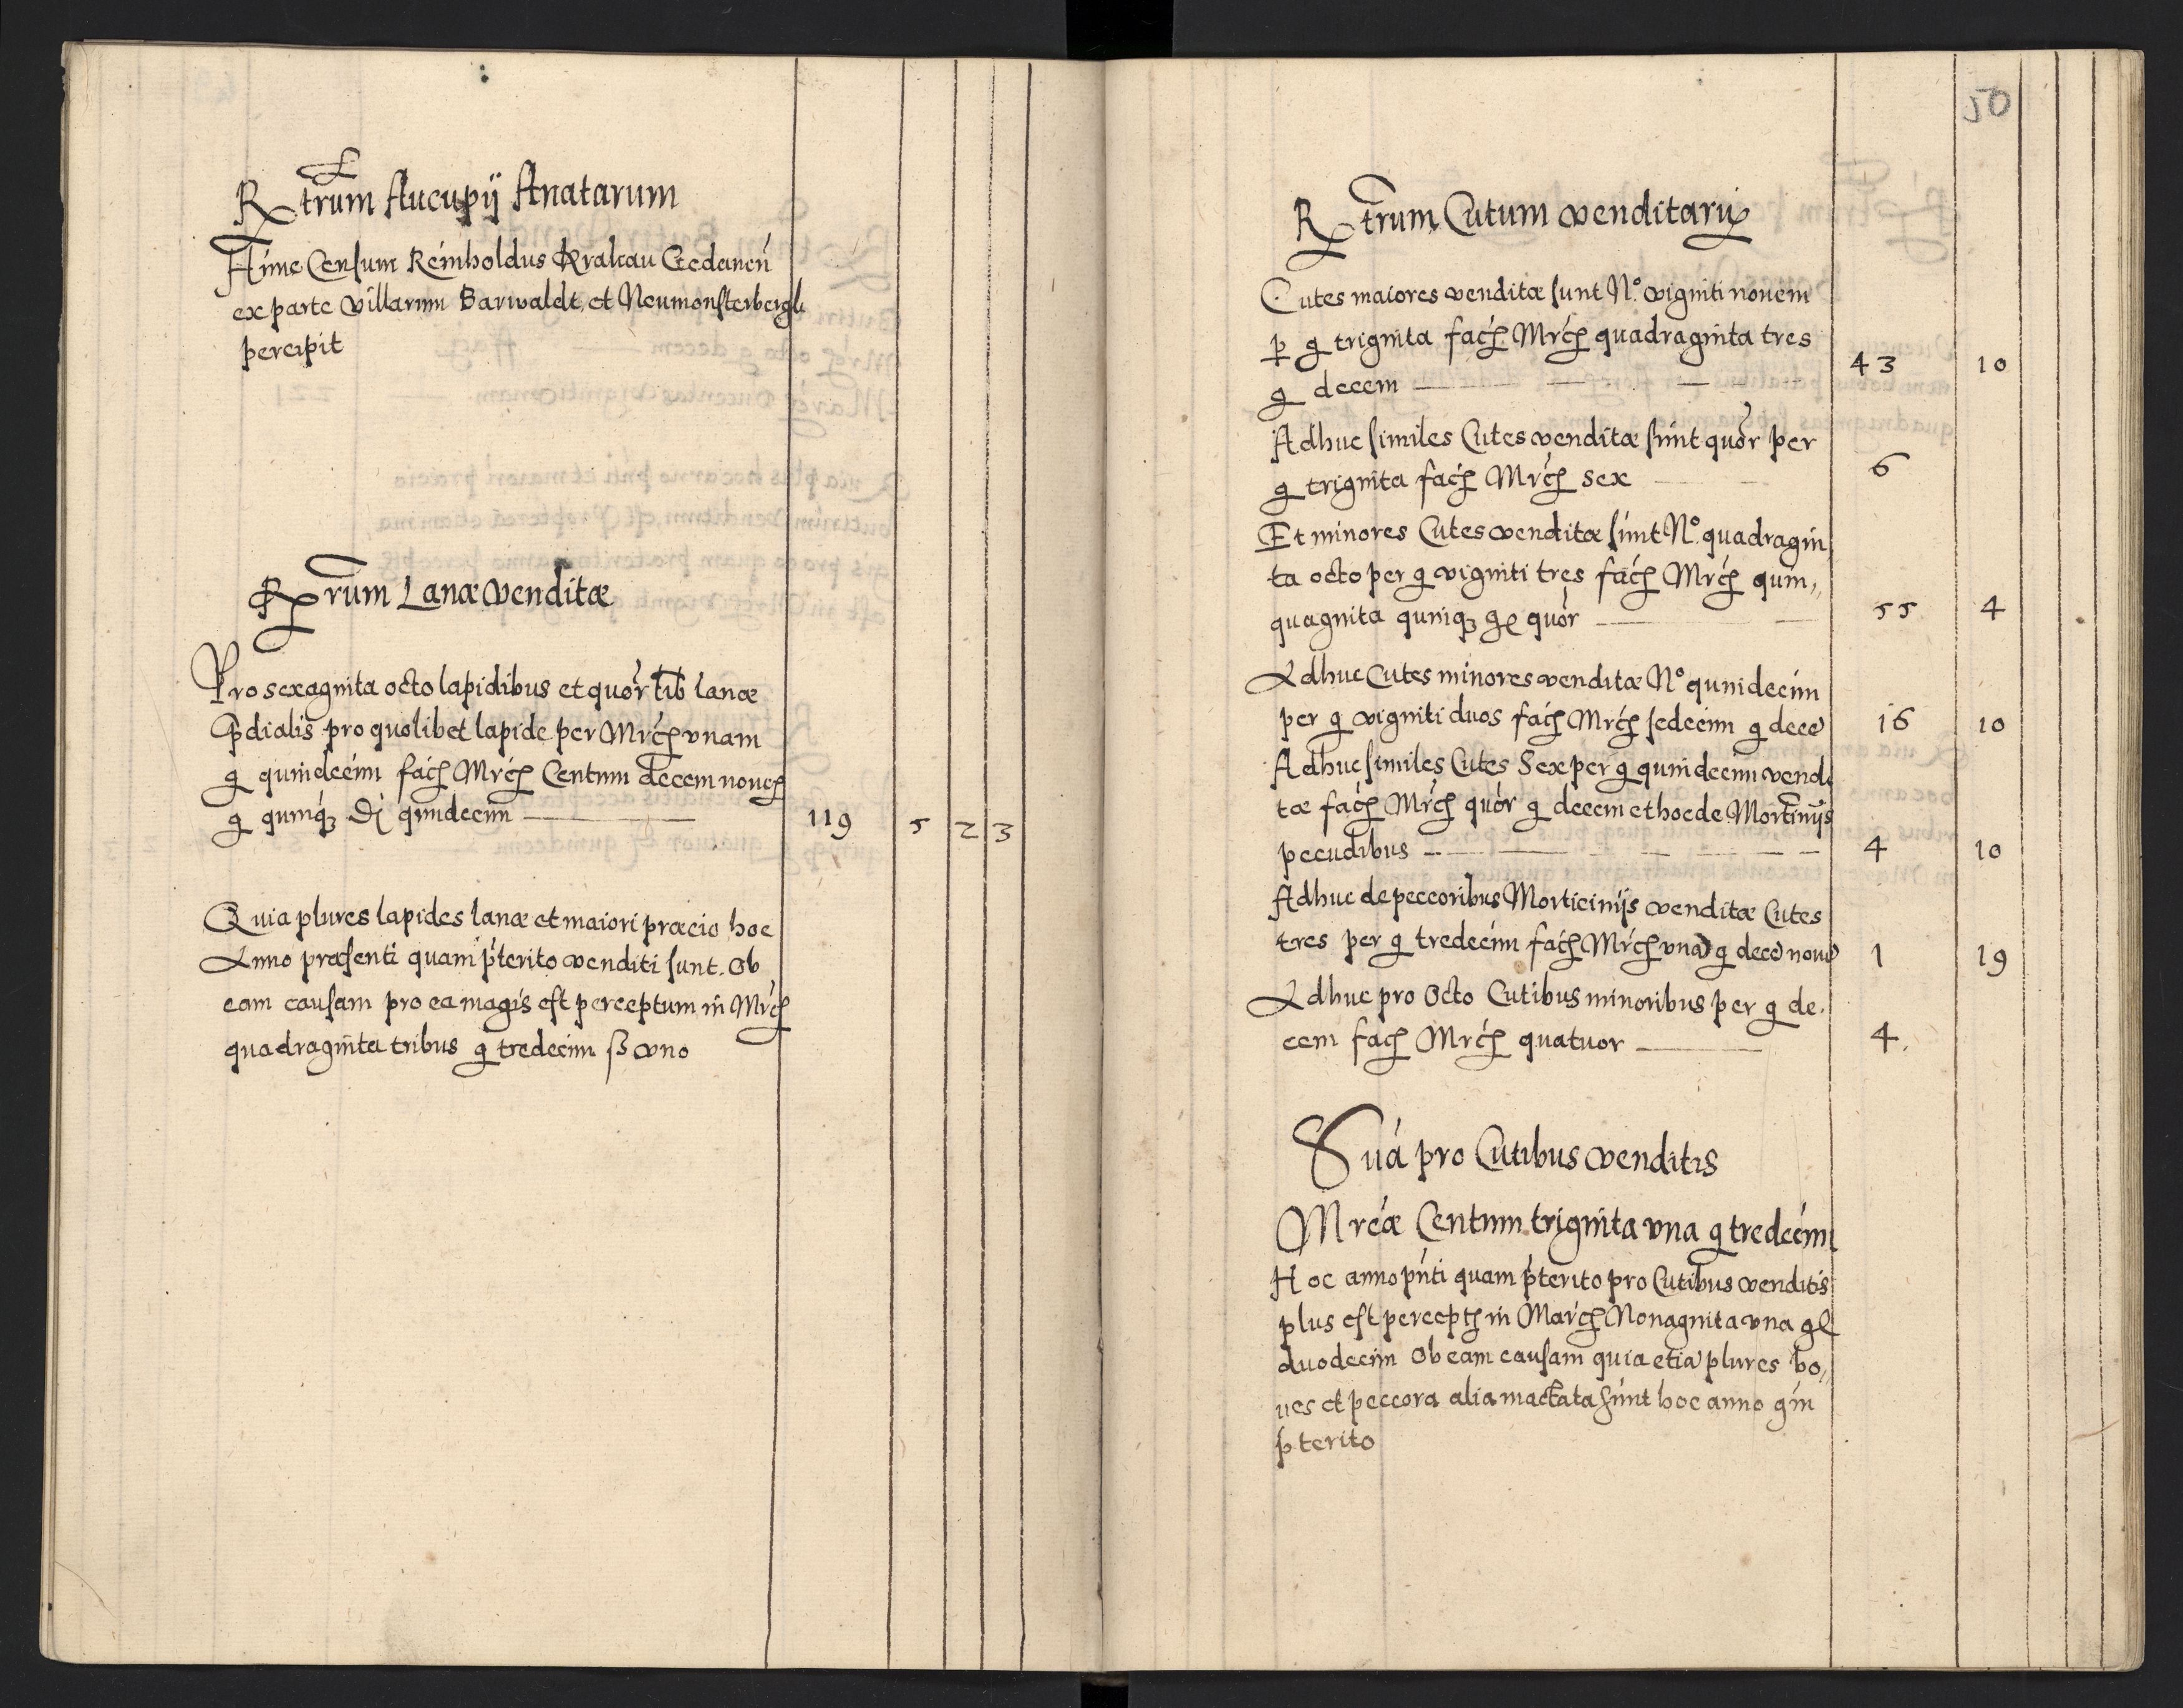 Rtrum Aucupij Anatarum
Hunc Censum Reinholdus Krakau Gedanen
ex parte villarum Barwaldt et Neumonsterbergk
percipit
Rtrum Lanæ venditæ
Pro sexaginta octo lapidibus et quor lib lanæ
prædialis pro quolibet lapide per Mrcam vnam
g quindecim fac Mrc Centum decem novem
g quinq; d quindecim
119 5 2 3
Quia plures lapides lanæ et maiori præcio hoc
Anno præsenti quam pterito venditi sunt. Ob
eam causam pro ea magis est perceptum in Mrc
quadraginta tribus g tredecim ß vno
50
Rtrum Cutum venditaru
Cutes maiores venditæ sunt No. viginti nouem
p g triginta fac Mrc quadraginta tres
g decem 43 10
Adhuc similes Cutes venditæ sunt quor per
g triginta fac Mrc sex 6
Et minores Cutes venditæ sunt No. quadragin
ta octo per g viginti tres fac Mrc quin„
quaginta quinq; g quor 55 4
Adhuc Cutes minores venditæ No quindecim
per g viginti duos fac Mrc sedecim g dece 16 10
Adhuc similes Cutes Sex per g quindecim vendi
tæ fac Mrc quor g decem et hoc de Morticinijs
pecudibus 4 10
Adhuc de peccoribus Morticinijs venditæ Cutes
tres per g tredecim fac Mrc vna g dece noue 1 19
Adhuc pro Octo Cutibus minoribus per g de.
cem fac Mrc quatuor 4.
Sua pro Cutibus venditis
Mrcæ Centum triginta vna g tredecim
Hoc anno pnti quam pterito pro Cutibus venditis
plus est percept in Marc Nonaginta vna g
duodecim Ob eam causam quia etia plures bo„
ues et peccora alia mactata sunt hoc anno qm
pterito